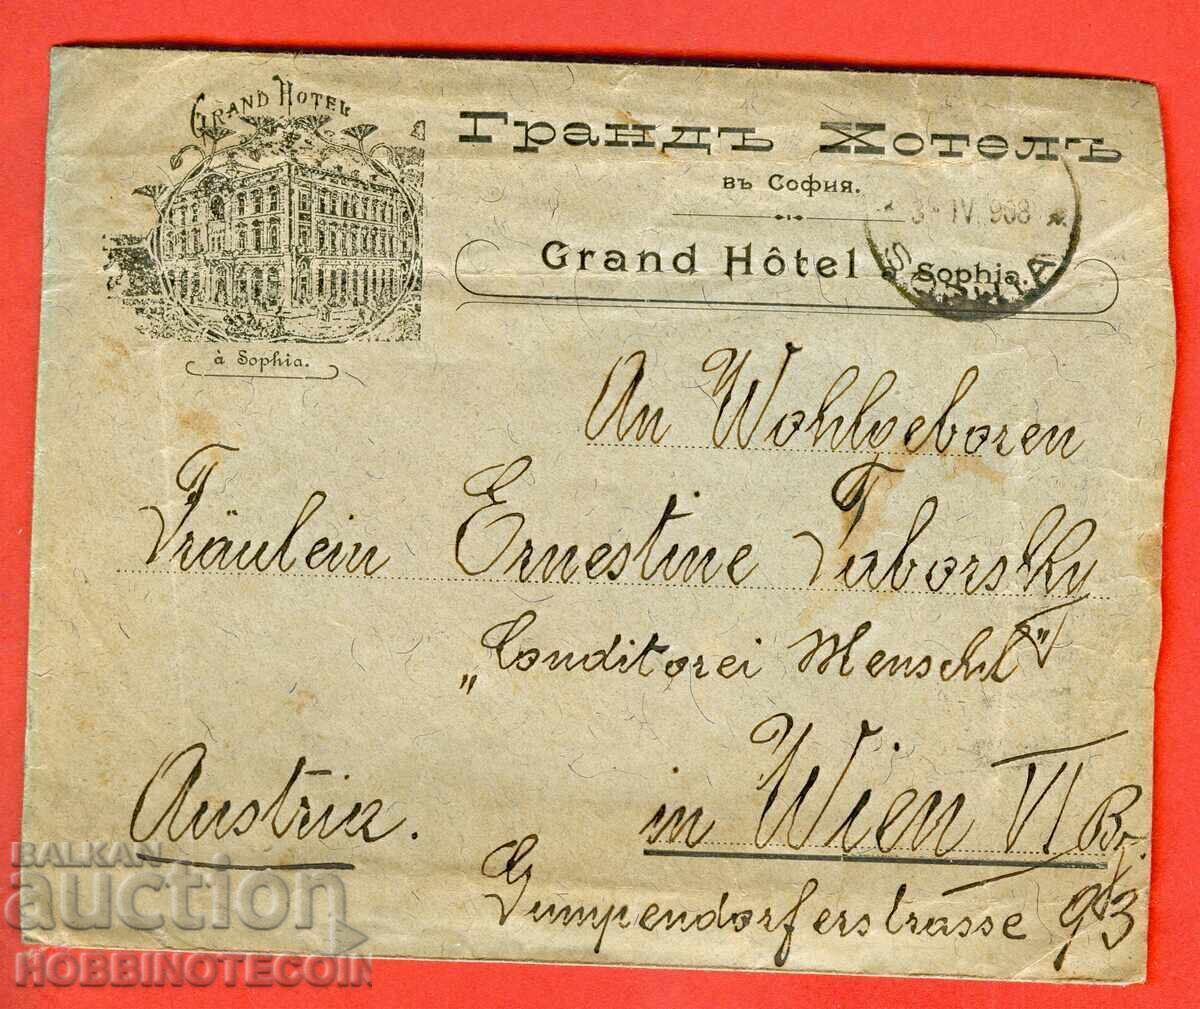 GRAND HOTEL
à Sophia.
Грандъ Хотелъ
въ София.
Grand Hôtel à Sophia.
IV 908
SOPHIA
An Wohlgeboren
Fräulein Ernestine Taborsky
„Conditorei Menschl"
in Wien VI Br.
Austria.
Gumpendorferstrasse 93
BALKAN
auction
HOBBINOTECOIN